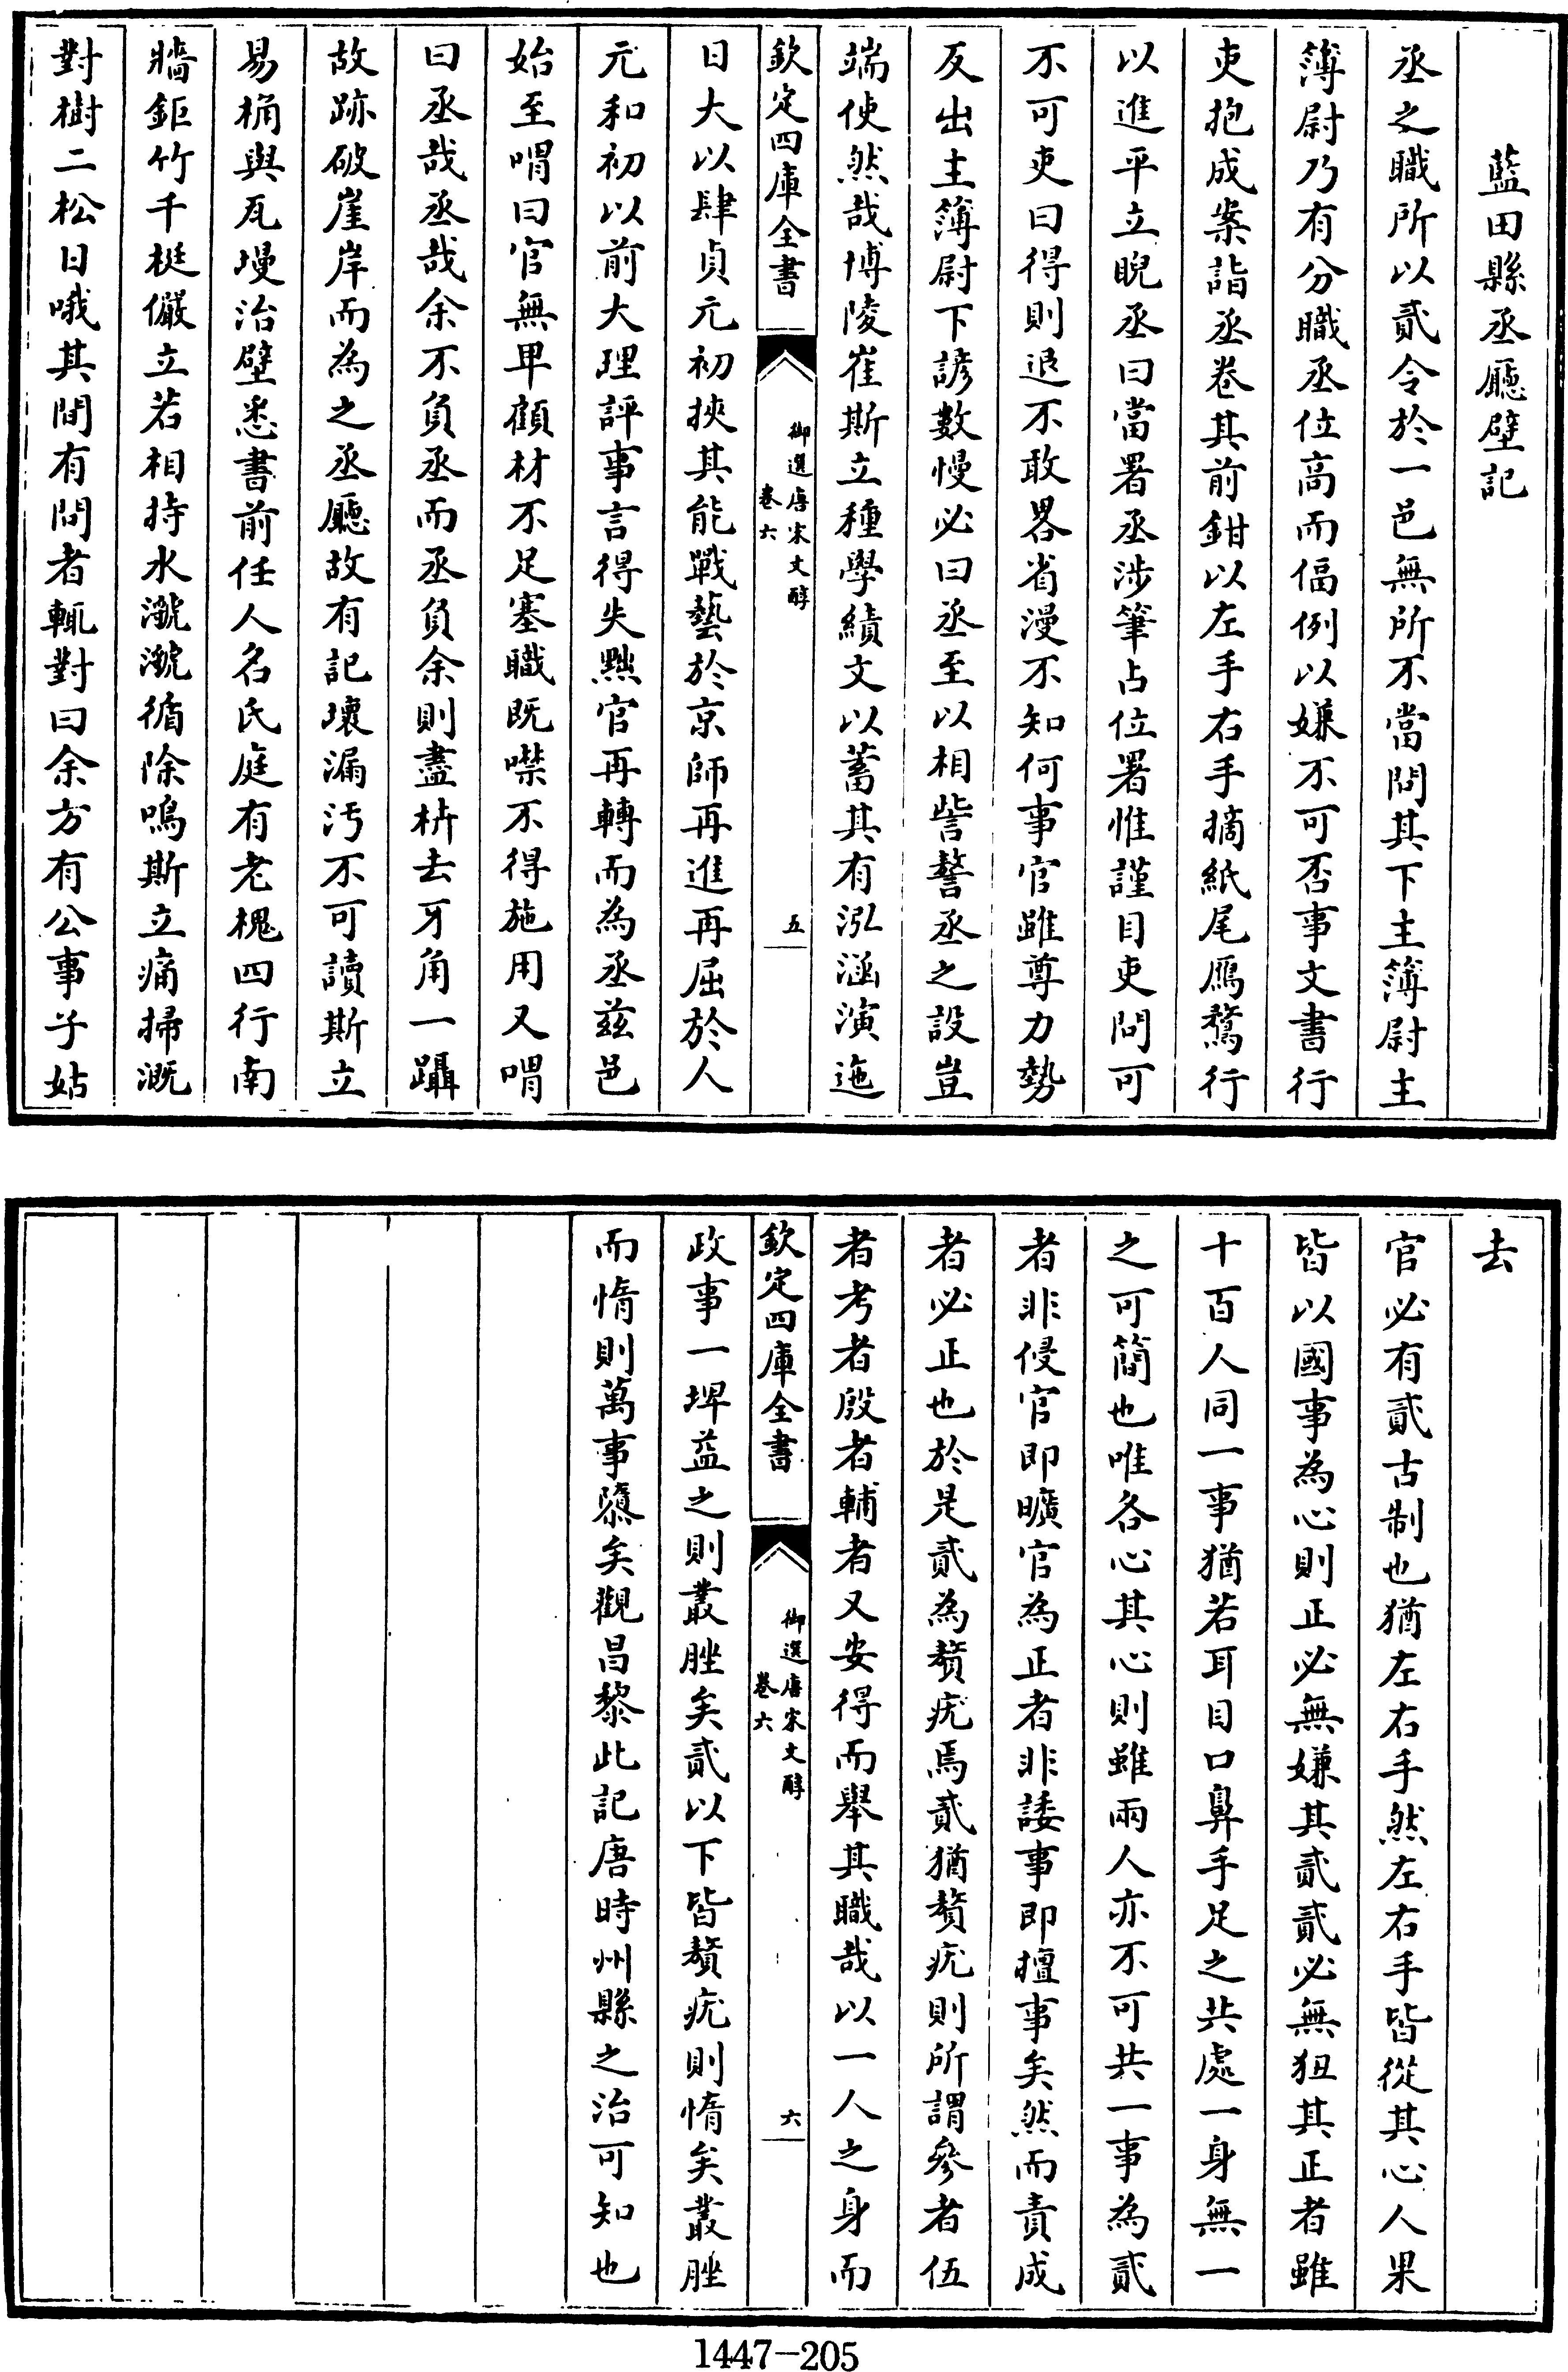 藍田縣丞廳壁記
丞之職所以貳令於一邑無所不當問其下主簿尉主
簿尉乃有分職丞位高而偪例以嫌不可否事文書行
吏抱成案詣丞卷其前鉗以左手右手摘紙尾鴈鶩行
以進平立睨丞曰當署丞涉筆占位署惟謹目吏問可
不可吏曰得則退不敢畧省漫不知何事官雖尊力勢
反出主簿尉下諺數慢必曰丞至以相訾謷丞之設豈
端使然哉博陵崔斯立種學績文以蓄其有泓涵演迤
欽定四庫全書
御選唐宋文醇
卷六
五
日大以肆貞元初挾其能戰藝於京師再進再屈於人
元和初以前大理評事言得失黜官再轉而為丞茲邑
始至喟曰官無卑顧材不足塞職既噤不得施用又喟
曰丞哉丞哉余不負丞而丞負余則盡枿去牙角一躡
故跡破崖岸而為之丞廳故有記壞漏汚不可讀斯立
易桷與瓦墁治壁悉書前任人名氏庭有老槐四行南
牆鉅竹千梃儼立若相持水㶁㶁循除鳴斯立痛掃溉
對樹二松日哦其間有問者輒對曰余方有公事子姑
去
官必有貳古制也猶左右手然左右手皆從其心人果
皆以國事為心則正必無嫌其貳貳必無狃其正者雖
十百人同一事猶若耳目口鼻手足之共處一身無一
之可簡也唯各心其心則雖兩人亦不可共一事為貳
者非侵官即曠官為正者非諉事即擅事矣然而責成
者必正也於是貳為贅疣焉貳猶贅疣則所謂參者伍
者考者殷者輔者又安得而舉其職哉以一人之身而
欽定四庫全書
御選唐宋文醇
卷六
六
政事一埤益之則叢脞矣貳以下皆贅疣則惰矣叢脞
而惰則萬事隳矣觀昌黎此記唐時州縣之治可知也
1447-205